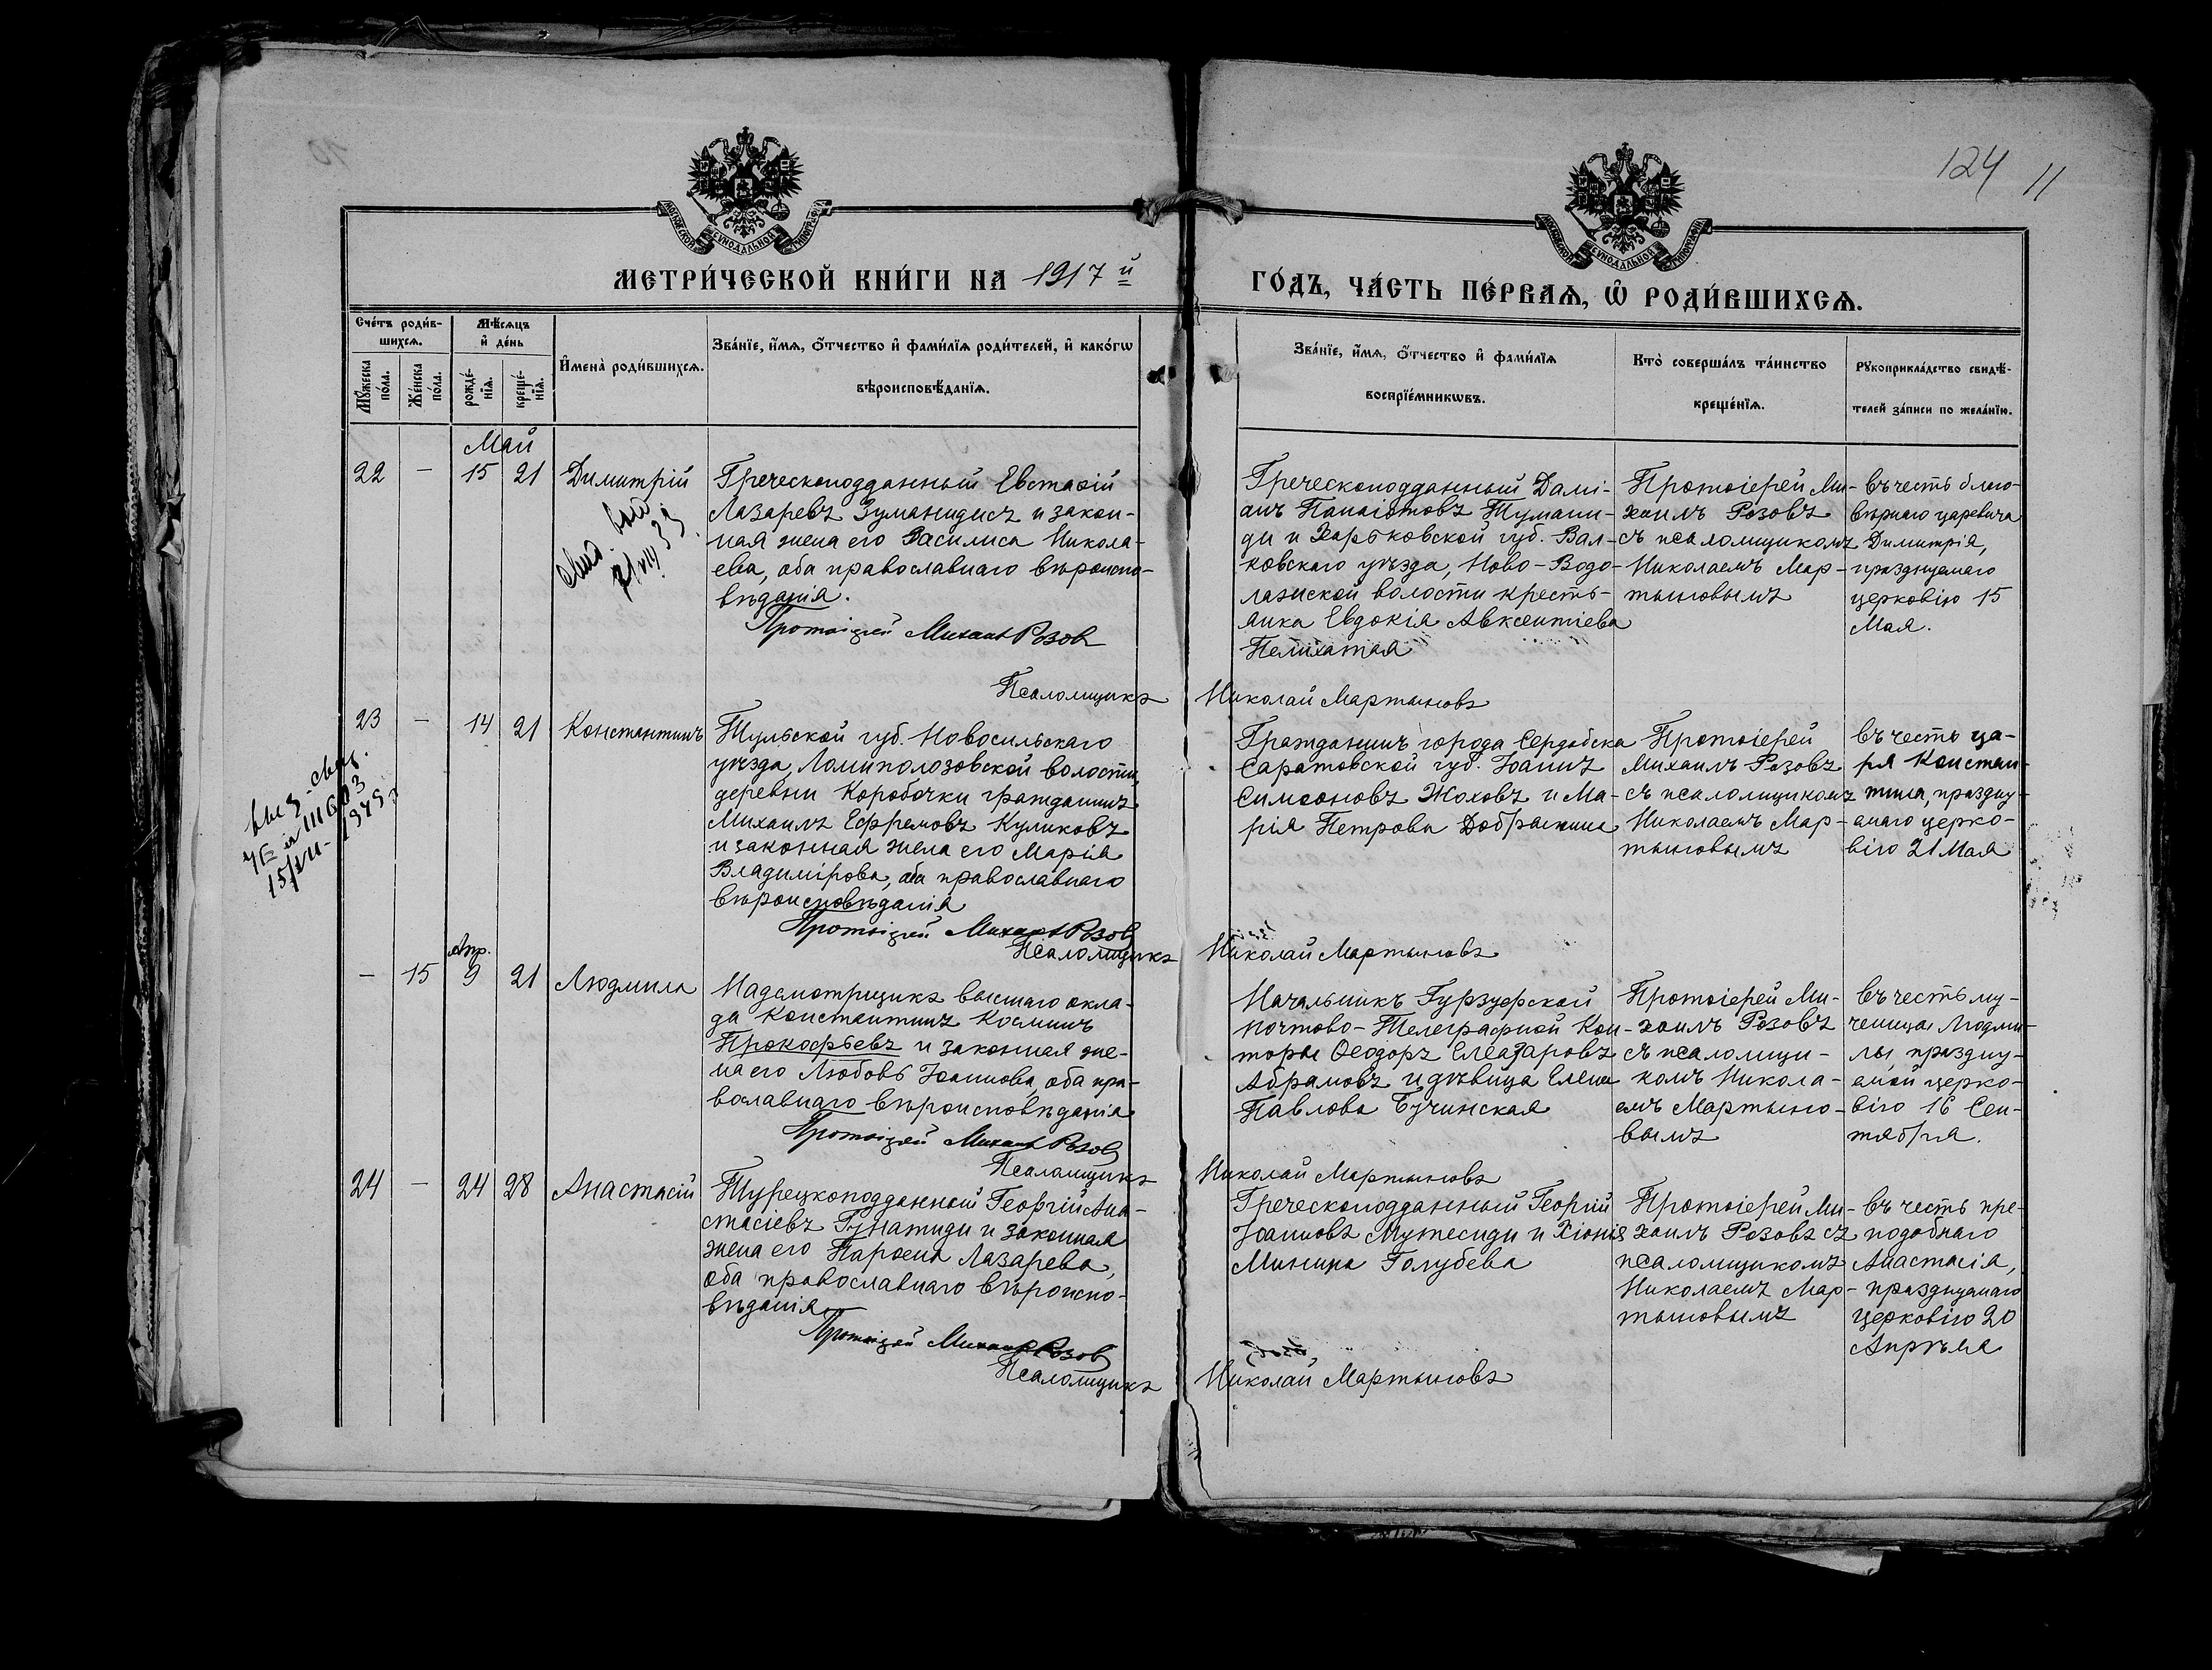 124 11
МОСКОВСКОЙ СѴНОДАЛЬНОЙ ТИПОГРАФІИ
МОСКОВСКОЙ СѴНОДАЛЬНОЙ ТИПОГРАФІИ
МЕТРИ́ЧЕСКОЙ КНИ́ГИ НА 1917 й
ГО́ДЪ, ЧА́СТЬ ПЕ́РВАѦ, Ѡ҆ РОДИ́ВШИХСѦ.
Сче́тъ роди́в-
шихсѧ.
Мꙋ́жеска по́ла.
Же́нска по́ла.
Мѣ́сѧцъ
и҆ де́нь
рожде́-
нїѧ.
креще́-
нїѧ.
И҆мена̀ роди́вшихсѧ.
Зва́нїе, и҆́мѧ, ѻ҆́тчество и҆ фами́лїѧ роди́телей, и҆ како́гѡ
вѣроисповѣ́данїѧ.
Зва́нїе, и҆́мѧ, ѻ҆́тчество и҆ фами́лїѧ
воспрїе́мникѡвъ.
Кто̀ соверша́лъ та́инство
креще́нїѧ.
Рꙋкоприкла́дство свидѣ́-
телей за́писи по жела́нїю.
Май
22 — 15 21 Димитрій
Греческоподданный Евстафій
Лазаревъ Зуманидисъ и закон-
ная жена его Василиса Никола-
ева, оба православнаго вѣроиспо-
вѣданія.
Протоіерей Михаил Розов
Псаломщикъ Николай Мартыновъ
Греческоподданный Дамі-
анъ Панаіотовъ Тумани-
ди и Харьковской губ. Вал-
ковскаго уѣзда, Ново-Водо-
лажской волости кресть-
янка Евдокія Авксентіева
Пелихатая
Протоіерей Ми-
хаилъ Розовъ
съ псаломщикомъ
Николаемъ Мар-
тыновымъ
въ честь благо-
вѣрнаго царевича
Димитрія,
празднуемаго
церковію 15
Мая.
23 — 14 21 Константинъ
Тульской губ. Новосильскаго
уѣзда, Ломиполозовской волости,
деревни Коробочки гражданинъ
Михаилъ Ефремовъ Куликовъ
и законная жена его Марія
Владимірова, оба православнаго
вѣроисповѣданія
Протоіерей Михаил Розов
Псаломщикъ Николай Мартыновъ
Гражданинъ города Сердобска
Саратовской губ. Іоаннъ
Симеоновъ Жоховъ и Ма-
рія Петрова Добрынина
Протоіерей
Михаилъ Розовъ
съ псаломщикомъ
Николаемъ Мар-
тыновымъ
въ честь ца-
ря Констан-
тина, праздну-
емаго церко-
вію 21 Мая
Апр.
— 15 9 21 Людмила
Надсмотрщикъ высшаго окла-
да Константинъ Косминъ
Прокофьевъ и законная же-
на его Любовь Іоаннова, оба пра-
вославнаго вѣроисповѣданія
Протоіерей Михаил Розов
Псаломщикъ Николай Мартыновъ
Начальникъ Гурзуфской
Почтово-Телеграфной Кон-
торы Ѳеодоръ Елеазаровъ
Абрамовъ и дѣвица Елена
Павлова Бучинская
Протоіерей Ми-
хаилъ Розовъ
съ псаломщи-
комъ Никола-
емъ Мартыно-
вымъ
въ честь му-
ченицы Людми-
лы, праздну-
емой церко-
вію 16 Сен-
тября.
24 — 24 28 Анастасій
Турецкоподданный Георгій Ана-
стасіевъ Гунатиди и законная
жена его Парѳена Лазарева,
оба православнаго вѣроиспо-
вѣданія
Протоіерей Михаил Розов
Псаломщикъ Николай Мартыновъ
Греческоподданный Георгій
Іоанновъ Мутесиди и Хіонія
Минина Голубева
Протоіерей Ми-
хаилъ Розовъ съ
псаломщикомъ
Николаемъ Мар-
тыновымъ
въ честь пре-
подобнаго
Анастасія,
празднуемаго
церковію 20
Апрѣля